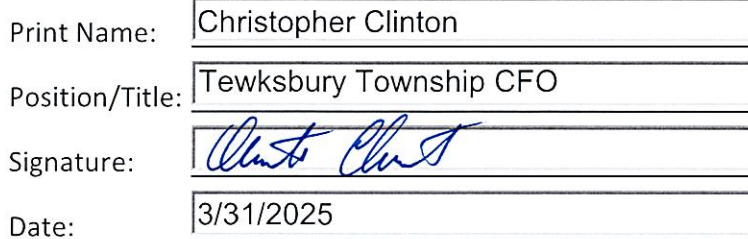 Print Name: Christopher Clinton
Position/Title: Tewksbury Township CFO
Signature:
Date: 3/31/2025